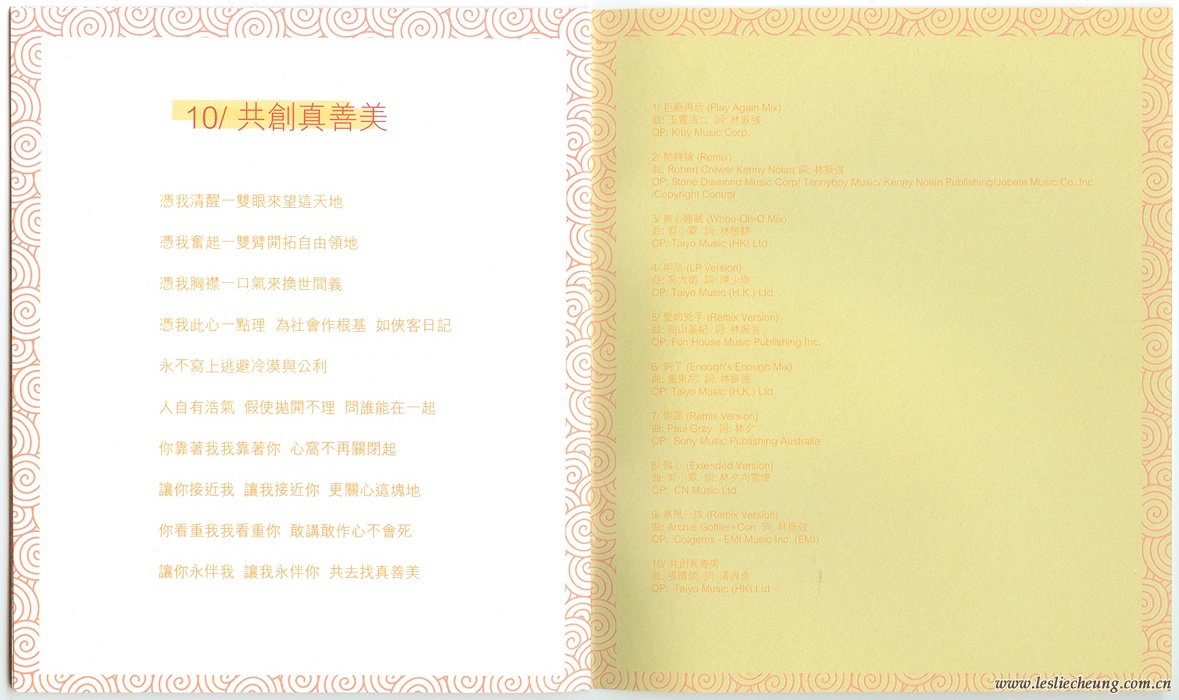 10/ 共創真善美
憑我清醒一雙眼來望這天地
憑我奮起一雙臂開拓自由領地
憑我胸襟一口氣來換世間義
憑我此心一點理 為社會作根基 如俠客日記
永不寫上逃避冷漠與公利
人自有浩氣 假使拋開不理 問誰能在一起
你靠著我我靠著你 心窩不再關閉起
讓你接近我 讓我接近你 更關心這塊地
你看重我我看重你 敢講敢作心不會死
讓你永伴我 讓我永伴你 共去找真善美
1/ 拒絕再玩 (Play Again Mix)
曲: 玉置浩二 詞: 林振強
OP: Kitty Music Corp.
2/ 熱辣辣 (Remix)
曲: Robert Crewe/ Kenny Nolan 詞: 林振強
OP: Stone Diamond Music Corp/ Tannyboy Music/ Kenny Nolan Publishing/Jobete Music Co.,Inc.
/Copyright Control
3/ 無心睡眠 (Whoo-Oh-O Mix)
曲: 郭小霖 詞: 林敏驄
OP: Taiyo Music (HK) Ltd.
4/ (LP Version)
曲: 詞: 陳少琪
OP: Taiyo Music (H.K.) Ltd.
5/ 愛的兇手 (Remix Version)
曲: 詞: 林振強
OP: Fun House Music Publishing Inc.
6/ 夠了 (Enough's Enough Mix)
曲: 盧東尼 詞: 林振強
OP: Taiyo Music (H.K.) Ltd
7/ 側面 (Remix Version)
曲: Paul Gray 詞: 林夕
OP: Sony Music Publishing Australia
8/ 偏心 (Extended Version)
曲: 郭小霖 詞: 林夕/何重恩
OP: CN Music Ltd.
9/ 暴風一族 (Remix Version)
曲: Archie Gottler+Con 詞: 林振強
OP: Colgems - EMI Music Inc. (EMI)
10/ 共創真善美
曲: 張國榮 詞: 潘源良
OP: Taiyo Music (HK) Ltd
www.lesliecheung.com.cn